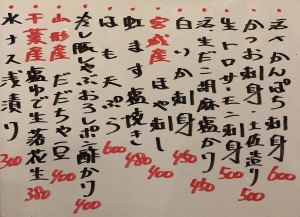 活〆かんぱち刺身 600
かつお刺身・土佐造り 500
生トロサーモン刺身 500
活生だこ胡麻塩かり 450
白いか刺身 450
宮城産 ほや刺し 480
虹ます塩焼き 480
はも天ぷら 600
冷し豚しゃぶおろしポン酢かけ 400
山形産 だだちゃ豆 400
千葉産 塩ゆで生落花生 380
水ナス浅漬り 300